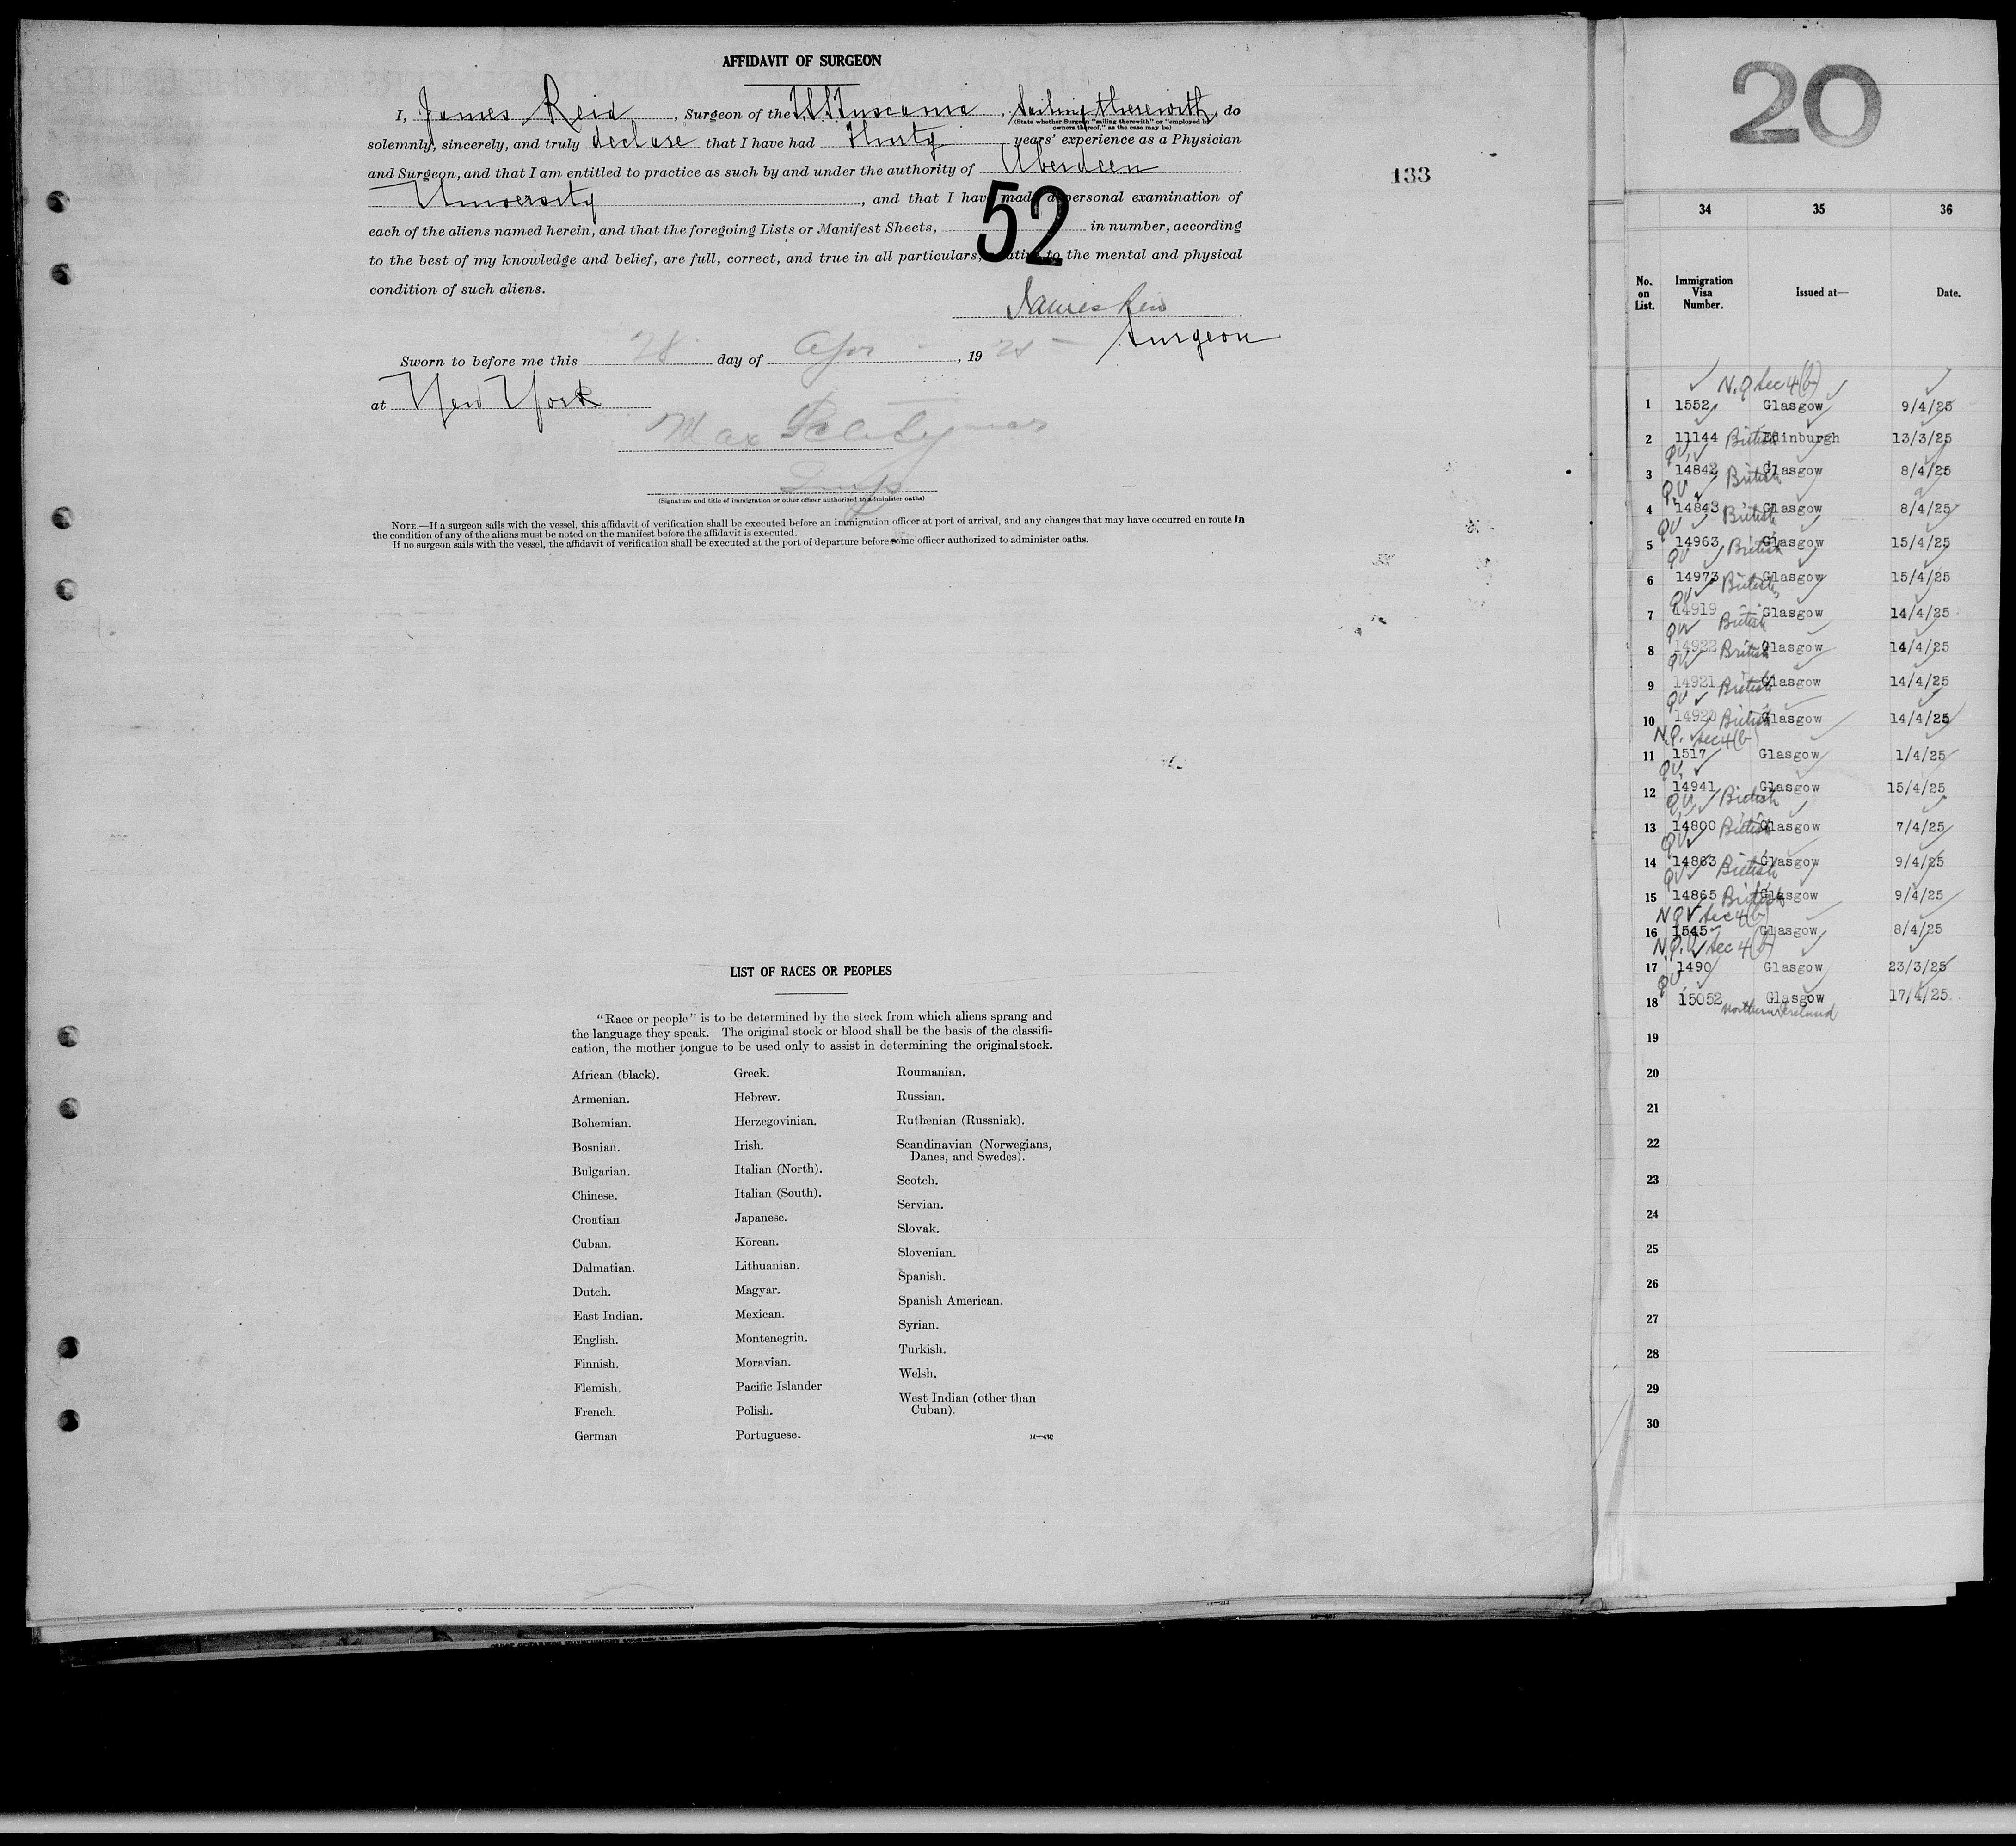 AFFIDAVIT OF SURGEON
I, James Reid, Surgeon of the T.S.S. Tuscania, sailing therewith, do
(State whether Surgeon "sailing therewith" or "employed by
owners thereof," as the case may be)
solemnly, sincerely, and truly declare that I have had Thirty years' experience as a Physician
and Surgeon, and that I am entitled to practice as such by and under the authority of Aberdeen
University, and that I have made a personal examination of
each of the aliens named herein, and that the foregoing Lists or Manifest Sheets, in number, according
52
to the best of my knowledge and belief, are full, correct, and true in all particulars, relative to the mental and physical
condition of such aliens.
James Reid
Surgeon
Sworn to before me this 28 day of Apr, 19 25
at New York
Max
Insp
(Signature and title of immigration or other officer authorized to administer oaths)
NOTE.—If a surgeon sails with the vessel, this affidavit of verification shall be executed before an immigration officer at port of arrival, and any changes that may have occurred en route in
the condition of any of the aliens must be noted on the manifest before the affidavit is executed.
If no surgeon sails with the vessel, the affidavit of verification shall be executed at the port of departure before some officer authorized to administer oaths.
133
LIST OF RACES OR PEOPLES
"Race or people" is to be determined by the stock from which aliens sprang and
the language they speak. The original stock or blood shall be the basis of the classifi-
cation, the mother tongue to be used only to assist in determining the original stock.
African (black).
Armenian.
Bohemian.
Bosnian.
Bulgarian.
Chinese.
Croatian
Cuban.
Dalmatian.
Dutch.
East Indian.
English.
Finnish.
Flemish.
French.
German
Greek.
Hebrew.
Herzegovinian.
Irish.
Italian (North).
Italian (South).
Japanese.
Korean.
Lithuanian.
Magyar.
Mexican.
Montenegrin.
Moravian.
Pacific Islander
Polish.
Portuguese.
Roumanian.
Russian.
Ruthenian (Russniak).
Scandinavian (Norwegians,
Danes, and Swedes).
Scotch.
Servian.
Slovak.
Slovenian.
Spanish.
Spanish American.
Syrian.
Turkish.
Welsh.
West Indian (other than
Cuban).
20
34 35 36
No. on List. Immigration Visa Number. Issued at— Date.
N.Q sec 4(b)
1 1552 Glasgow 9/4/25
2 11144 British Edinburgh 13/3/25
QV
3 14842 British Glasgow 8/4/25
QV
4 14843 British Glasgow 8/4/25
QV
5 14963 British Glasgow 15/4/25
QV
6 14973 British Glasgow 15/4/25
QV
7 14919 British Glasgow 14/4/25
QV
8 14922 British Glasgow 14/4/25
QV
9 14921 British Glasgow 14/4/25
QV
10 14920 British Glasgow 14/4/25
N.Q. sec 4(b)
11 1517 Glasgow 1/4/25
QV
12 14941 British Glasgow 15/4/25
QV
13 14800 British Glasgow 7/4/25
QV
14 14863 British Glasgow 9/4/25
QV
15 14865 British Glasgow 9/4/25
NQV sec 4(b)
16 1545 Glasgow 8/4/25
N.Q.V sec 4(b)
17 1490 Glasgow 23/3/25
QV
18 15052 Glasgow 17/4/25
Northern Ireland
19
20
21
22
23
24
25
26
27
28
29
30